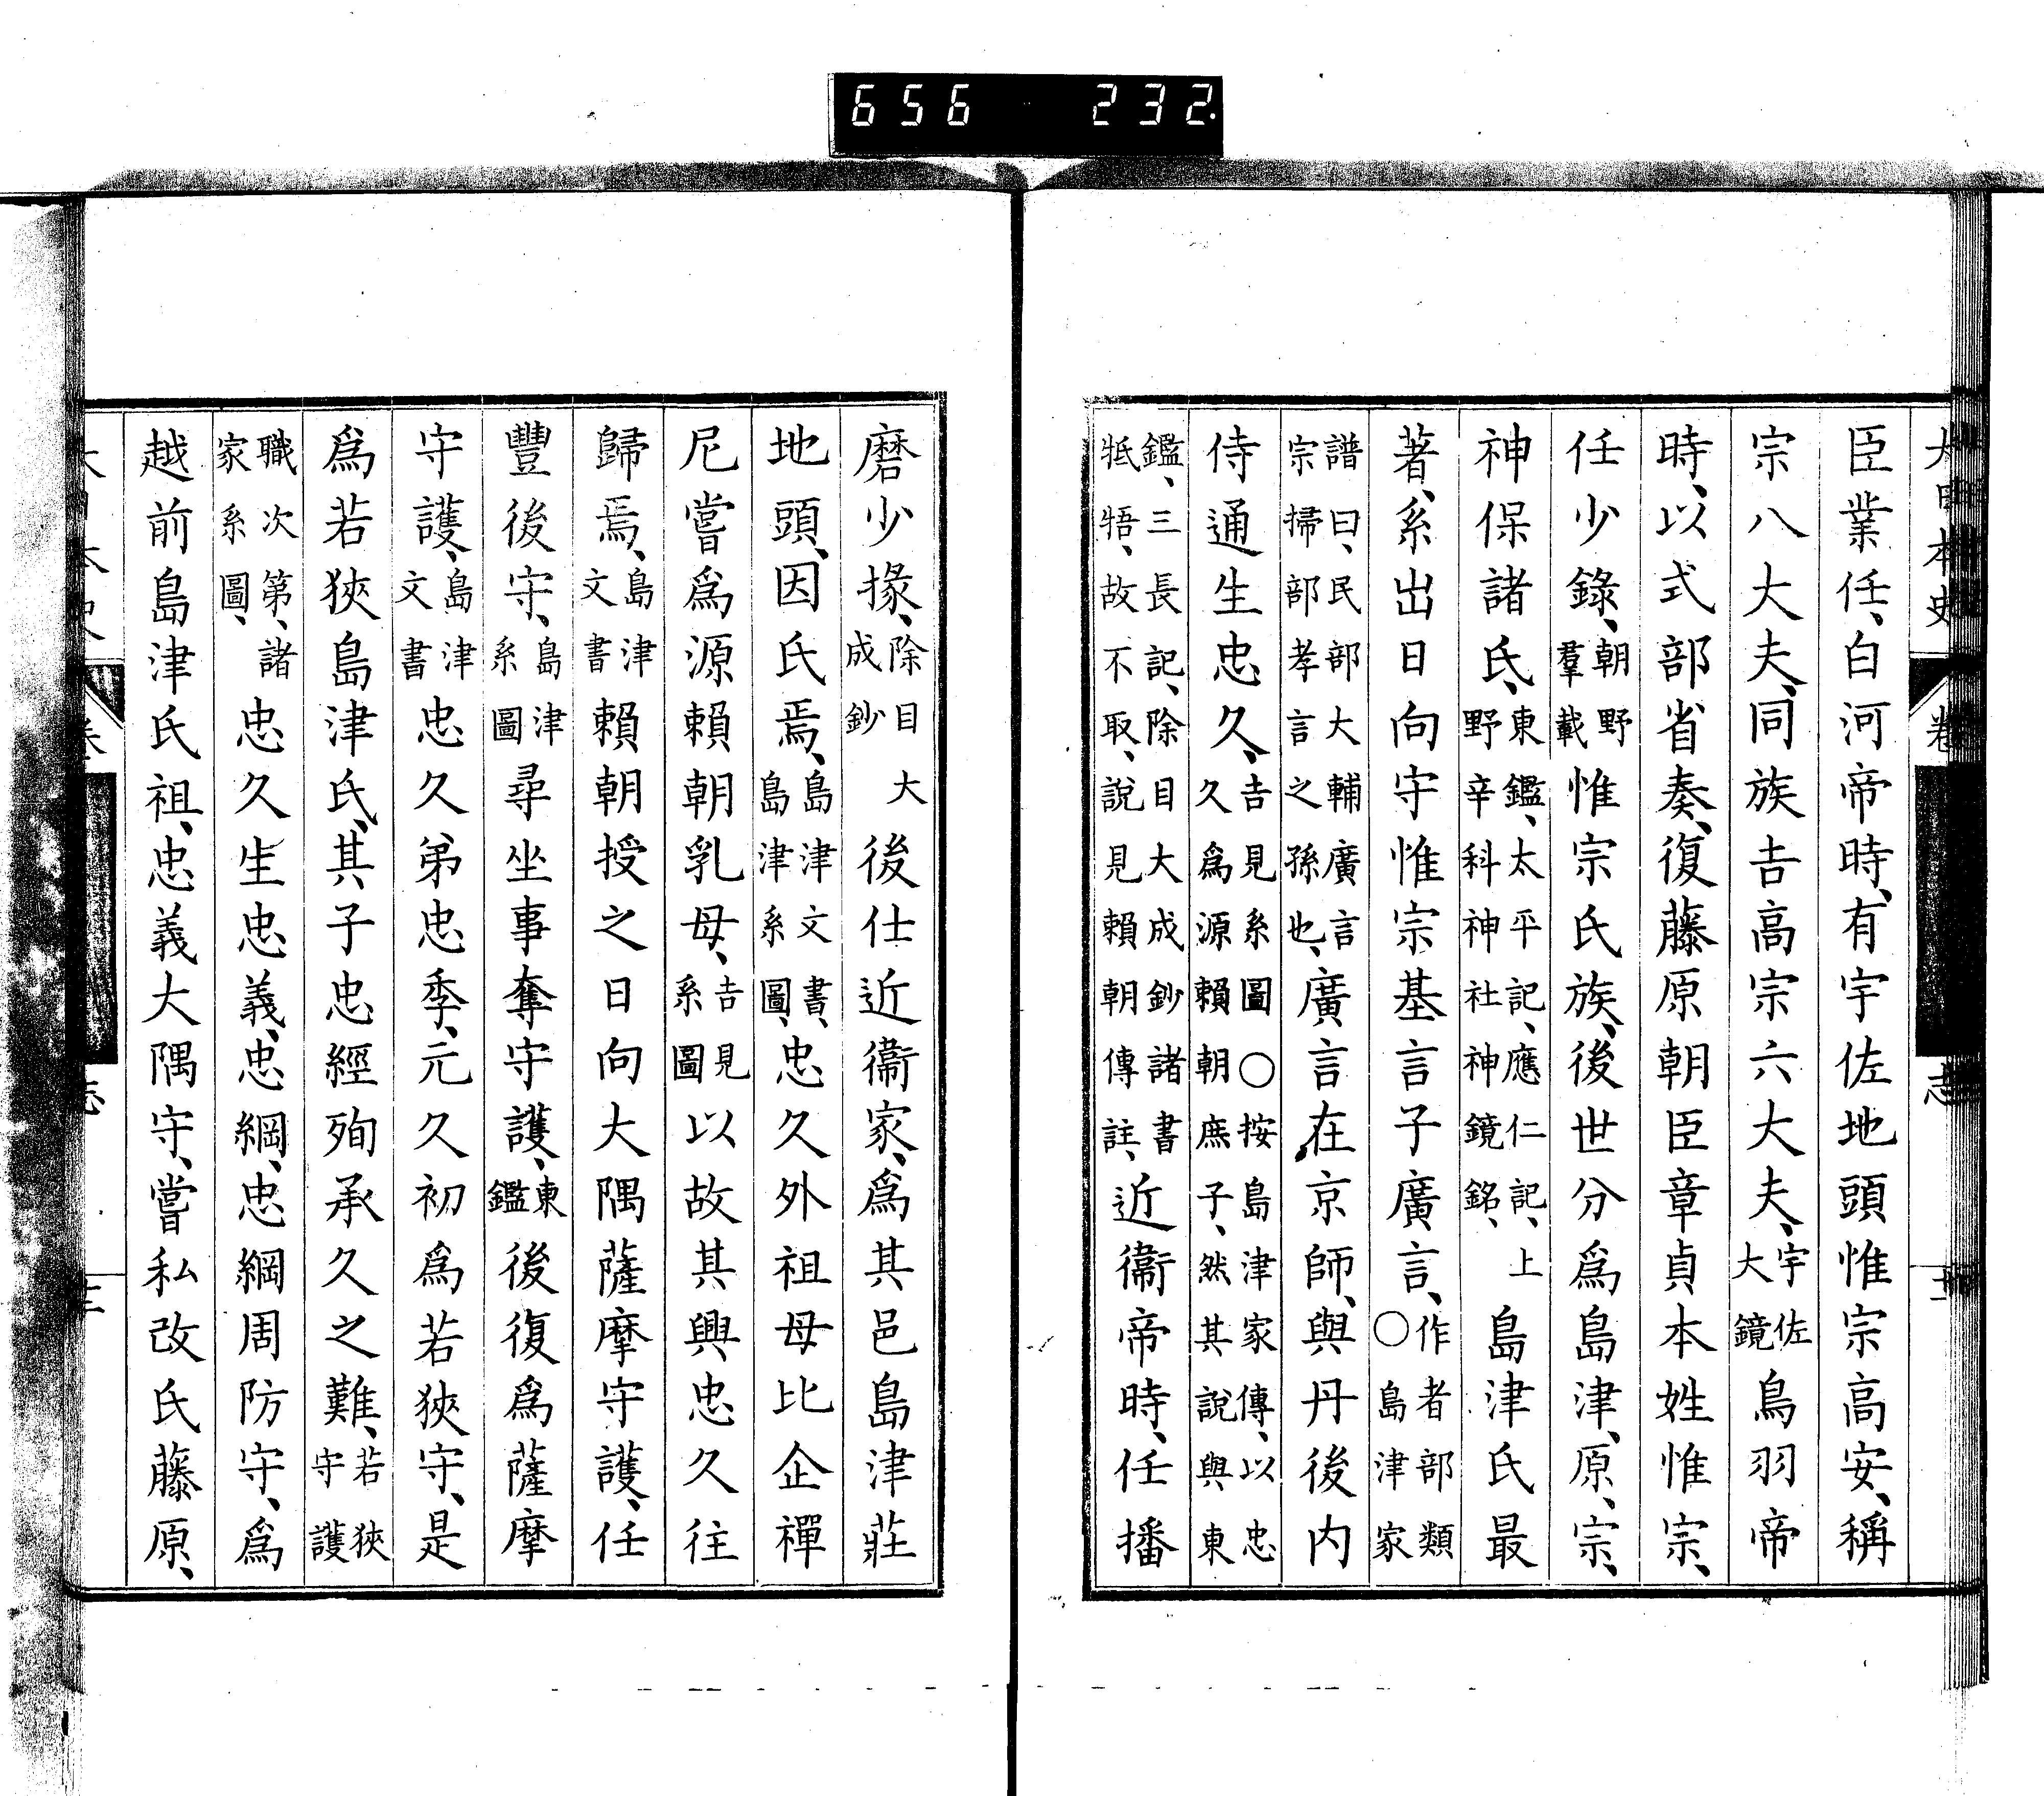 656 232
大日本史 卷 志
臣業任、白河帝時、有宇佐地頭惟宗高安、稱
宗八大夫、同族吉高宗六大夫、宇佐大鏡鳥羽帝
時、以式部省奏、復藤原朝臣章貞本姓惟宗、
任少錄、朝野羣載惟宗氏族、後世分爲島津、原、宗、
神保諸氏、東鑑、太平記、應仁記、上野辛科神社神鏡銘、島津氏最
著、系出日向守惟宗基言子廣言、作者部類○島津家
譜曰、民部大輔廣言宗掃部孝言之孫也、廣言在京師、與丹後内
侍通生忠久、吉見系圖○按島津家傳、以忠久爲源賴朝庶子、然其說與東
鑑、三長記、除目大成鈔諸書牴牾、故不取、說見賴朝傳註、近衞帝時、任播
磨少掾、除目大成鈔後仕近衞家、爲其邑島津莊
地頭、因氏焉、島津文書、島津系圖、忠久外祖母比企禪
尼嘗爲源賴朝乳母、吉見系圖以故其興、忠久往
歸焉、島津文書賴朝授之日向大隅薩摩守護、任
豐後守、島津系圖尋坐事奪守護、東鑑後復爲薩摩
守護、島津文書忠久弟忠季、元久初爲若狹守、是
爲若狹島津氏、其子忠經殉承久之難、若狹守護
職次第、諸家系圖、忠久生忠義、忠綱、忠綱周防守、爲
越前島津氏祖、忠義大隅守、嘗私改氏藤原、